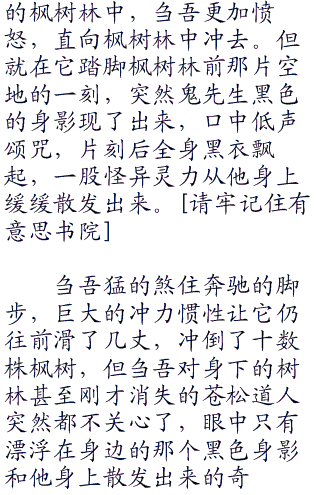 的枫树林中，刍吾更加愤
怒，直向枫树林中冲去。但
就在它踏脚枫树林前那片空
地的一刻，突然鬼先生黑色
的身影现了出来，口中低声
颂咒，片刻后全身黑衣飘
起，一股怪异灵力从他身上
缓缓散发出来。[请牢记住有
意思书院]
刍吾猛的煞住奔驰的脚
步，巨大的冲力惯性让它仍
往前滑了几丈，冲倒了十数
株枫树，但刍吾对身下的树
林甚至刚才消失的苍松道人
突然都不关心了，眼中只有
漂浮在身边的那个黑色身影
和他身上散发出来的奇